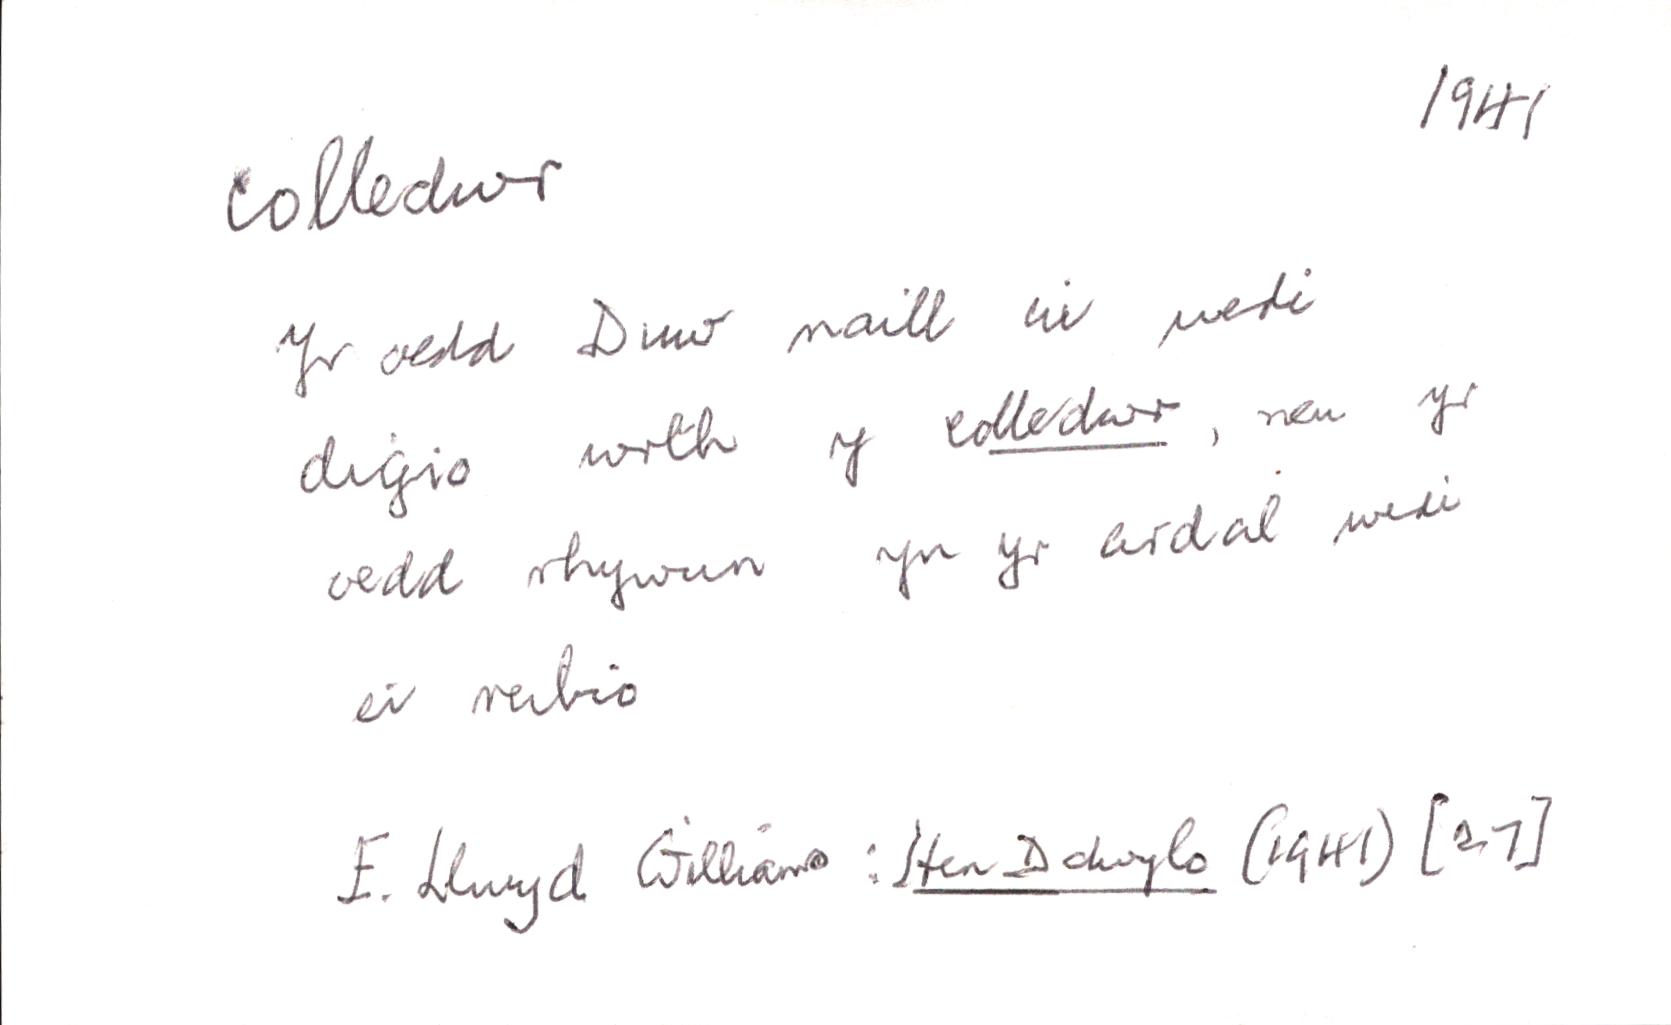 1941
colledwr
Yr oedd Duw naill ai wedi
digio wrth y colledwr, neu yr
oedd rhywun yn yr ardal wedi
ei reibio
E. Llwyd Williams : Hen Ddwylo (1941) [27]